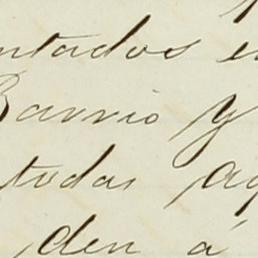 ntados e
Barrio y
todas aq
den á